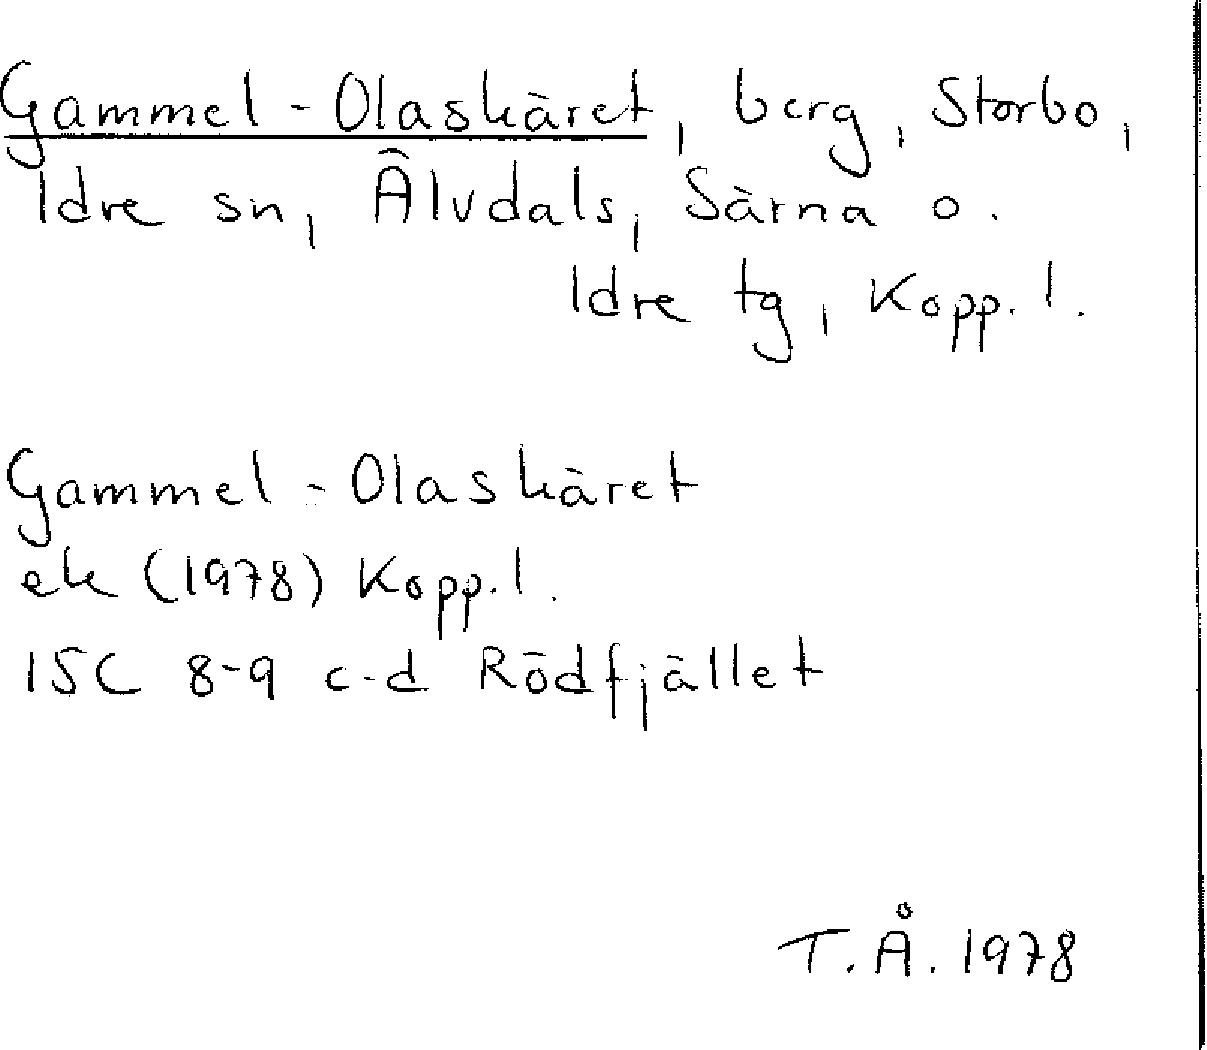 Gammel-Olaskäret, berg, Storbo,
Idre sn, Älvdals, Särna o.
Idre tg, Kopp. l.
Gammel-Olaskäret
ek (1978) Kopp. l.
15C 8-9 c-d Rödfjället
T.Å. 1978